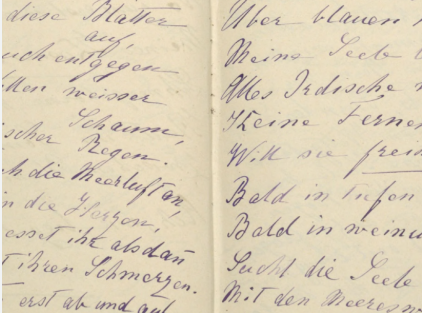 diese Blätter
auf,
uch entgegen
weisser
Schaum,
ischer Regen.
die Meerluft an,
in die Herzen,
esset ihr alsdan
t ihren Schmerzen.
erst ab und auf
Über blauen
Meine Seele
Alles Irdische
Keine Fernen
Will sie frei
Bald in tiefen
Bald in
Sucht die Seele
Mit den Meeresw